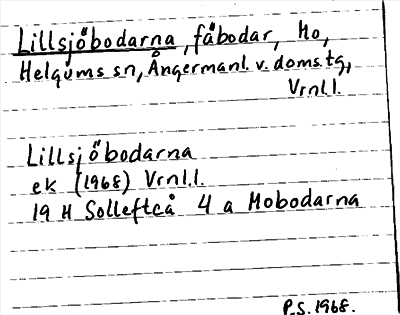 Lillsjöbodarna, fäbodar, Mo,
Helgums sn, Ångermanl. v. doms.tg,
Vrnl l.
Lillsjöbodarna
ek (1968) Vrnl.l.
19 H Sollefteå 4 a Mobodarna
P.S. 1968.